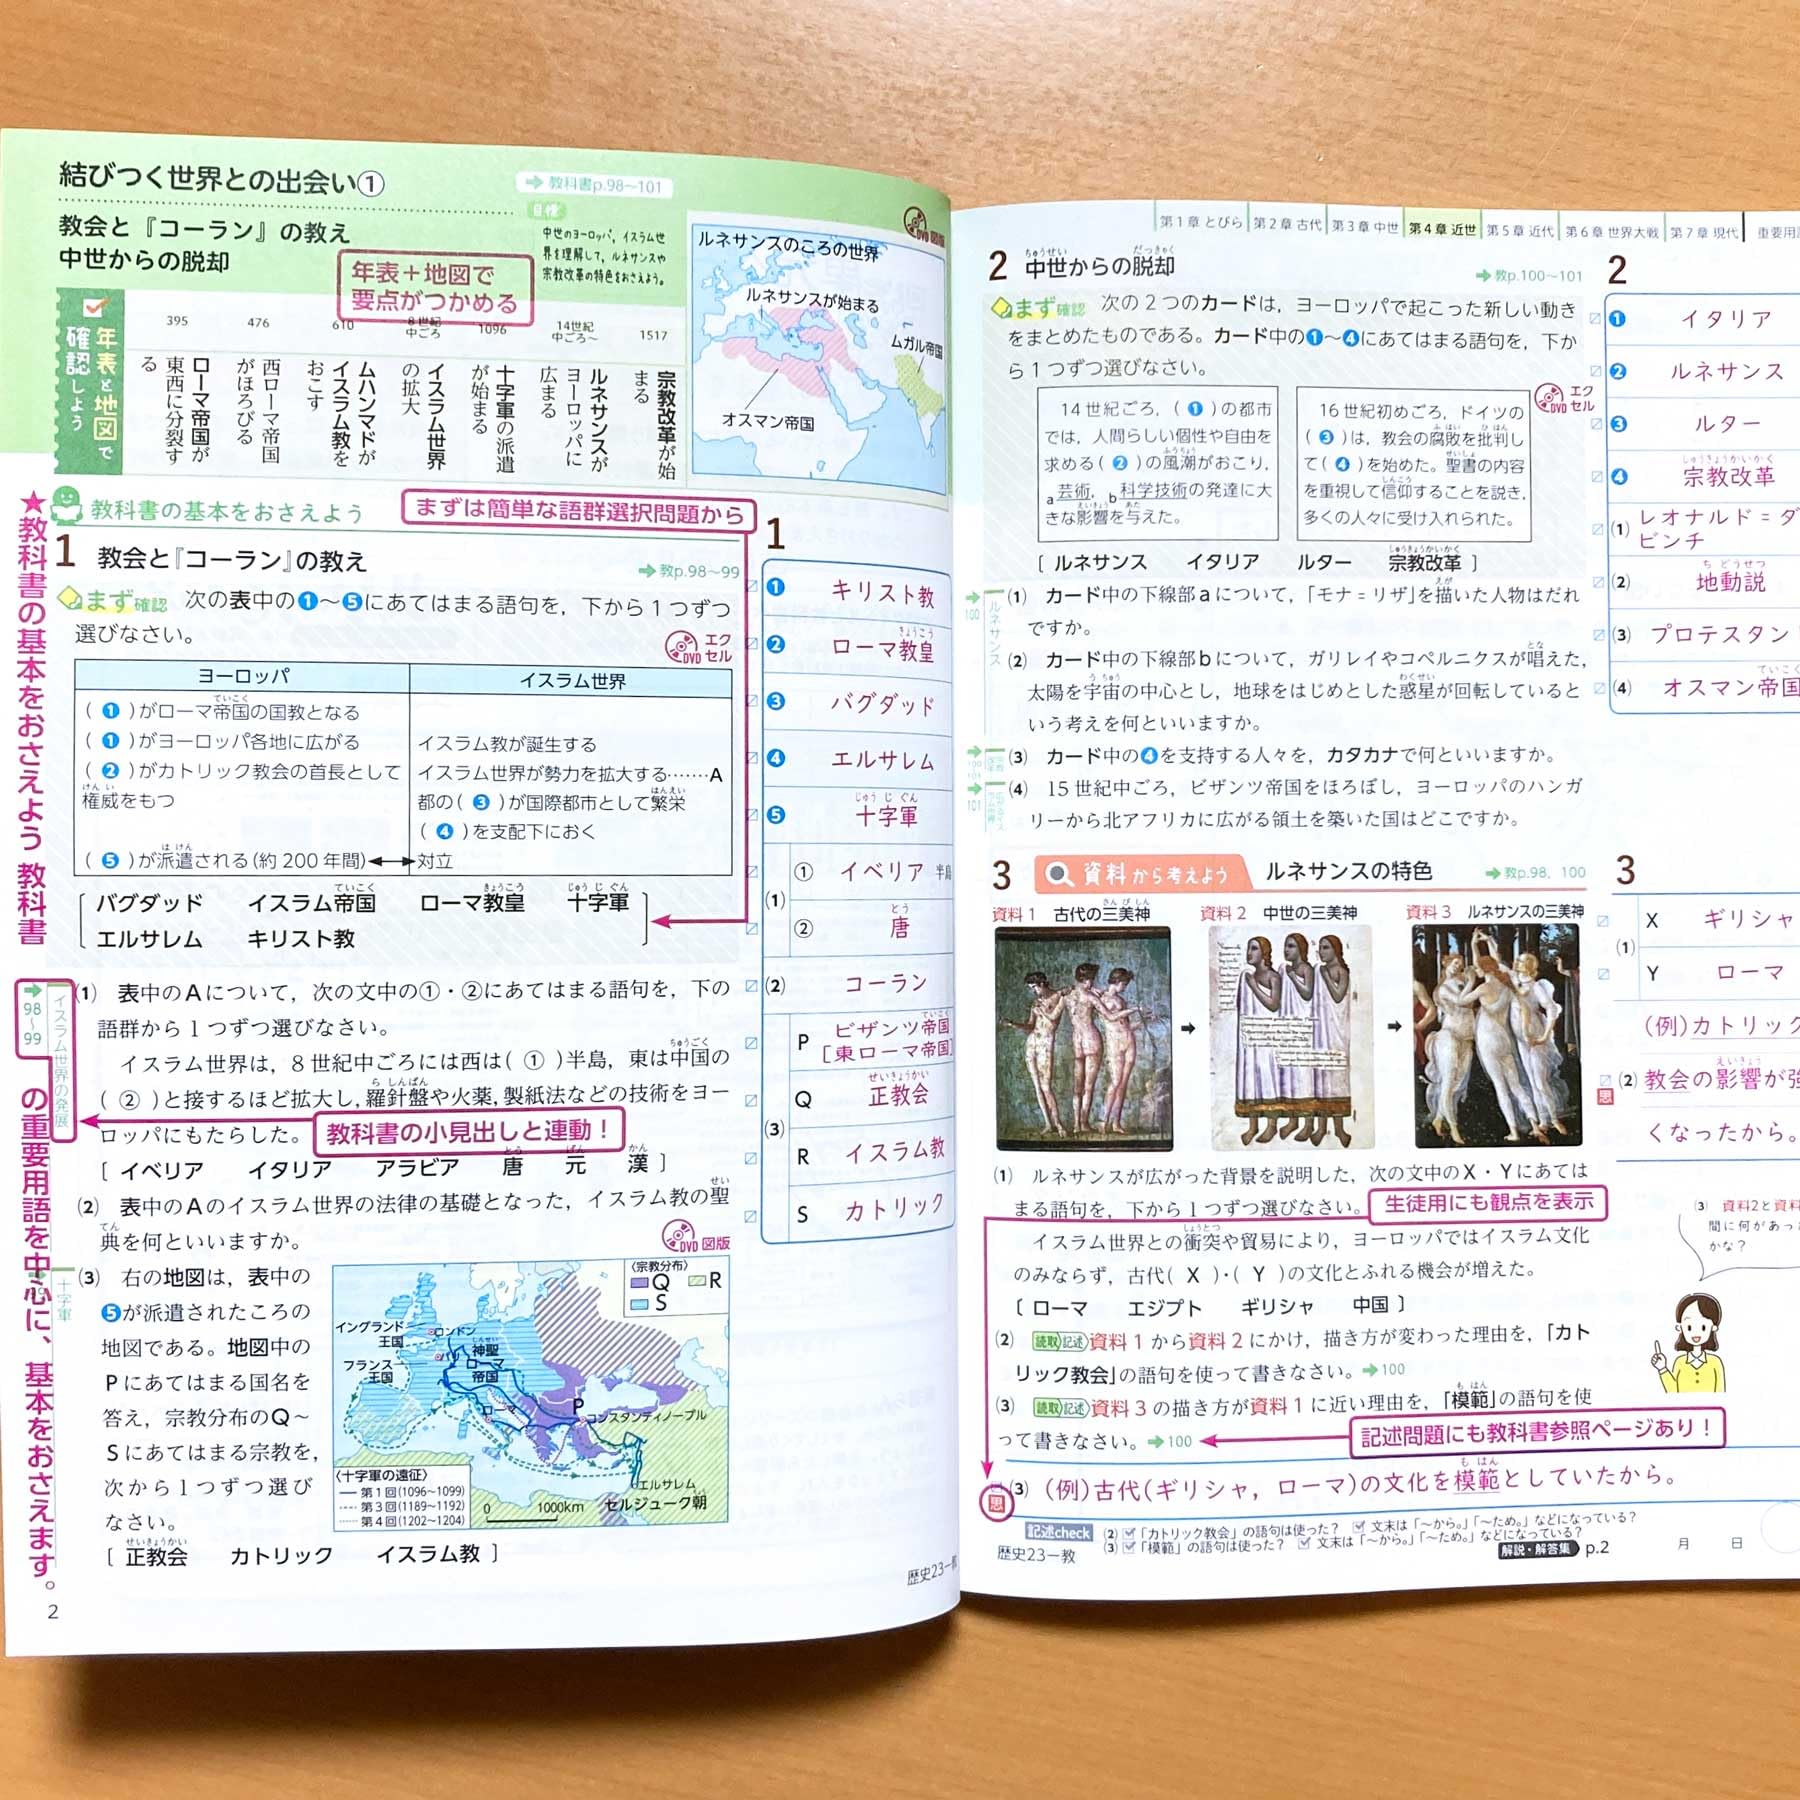 結びつく世界との出会い①
➡教科書p.98〜101
教会と『コーラン』の教え
中世からの脱却
目標
中世のヨーロッパ，イスラム世
界を理解して，ルネサンスや
宗教改革の特色をおさえよう。
年表＋地図で
要点がつかめる
DVD図版
ルネサンスのころの世界
ルネサンスが始まる
ムガル帝国
オスマン帝国
年表と地図で
確認しよう
395
ローマ帝国が
東西に分裂す
る
476
西ローマ帝国
がほろびる
610
ムハンマドが
イスラム教を
おこす
8世紀
中ごろ
イスラム世界
の拡大
1096
十字軍の派遣
が始まる
14世紀
中ごろ〜
ルネサンスが
ヨーロッパに
広まる
1517
宗教改革が始
まる
★教科書の基本をおさえよう 教科書
の重要用語を中心に、基本をおさえます。
教科書の基本をおさえよう
まずは簡単な語群選択問題から
1 教会と『コーラン』の教え
➡教p.98〜99
まず確認 次の表中の❶〜❺にあてはまる語句を，下から1つずつ
選びなさい。
DVD エクセル
ヨーロッパ
イスラム世界
(❶)がローマ帝国の国教となる
(❶)がヨーロッパ各地に広がる
(❷)がカトリック教会の首長として
権威をもつ
(❺)が派遣される(約200年間)
イスラム教が誕生する
イスラム世界が勢力を拡大する……A
都の(❸)が国際都市として繁栄
(❹)を支配下におく
対立
バグダッド イスラム帝国 ローマ教皇 十字軍
エルサレム キリスト教
➡98〜99
イスラム世界の発展
(1) 表中のAについて，次の文中の①・②にあてはまる語句を，下の
語群から1つずつ選びなさい。
イスラム世界は，8世紀中ごろには西は(①)半島，東は中国の
(②)と接するほど拡大し，羅針盤や火薬，製紙法などの技術をヨー
ロッパにもたらした。
教科書の小見出しと連動！
[イベリア イタリア アラビア 唐 元 漢]
(2) 表中のAのイスラム世界の法律の基礎となった，イスラム教の聖
典を何といいますか。
DVD 図版
十字軍
(3) 右の地図は，表中の
❺が派遣されたころの
地図である。地図中の
Pにあてはまる国名を
答え，宗教分布のQ〜
Sにあてはまる宗教を，
次から1つずつ選び
なさい。
[正教会 カトリック イスラム教]
〈宗教分布〉
Q R
S
イングランド
王国
ロンドン
パリ
神聖
ローマ
帝国
フランス
王国
ローマ
P
コンスタンティノープル
エルサレム
セルジューク朝
〈十字軍の遠征〉
第1回(1096〜1099)
第3回(1189〜1192)
第4回(1202〜1204)
0 1000km
1
❶ キリスト教
❷ ローマ教皇
❸ バグダッド
❹ エルサレム
❺ 十字軍
(1) ① イベリア 半島
② 唐
(2) コーラン
(3) P ビザンツ帝国
[東ローマ帝国]
Q 正教会
R イスラム教
S カトリック
歴史23―教
2
第1章 とびら 第2章 古代 第3章 中世 第4章 近世 第5章 近代 第6章 世界大戦 第7章 現代 重要用語
2 中世からの脱却
➡教p.100〜101
まず確認 次の2つのカードは，ヨーロッパで起こった新しい動き
をまとめたものである。カード中の❶〜❹にあてはまる語句を，下か
ら1つずつ選びなさい。
DVD エクセル
14世紀ごろ，(❶)の都市
では，人間らしい個性や自由を
求める(❷)の風潮がおこり，
a芸術，b科学技術の発達に大
きな影響を与えた。
16世紀初めごろ，ドイツの
(❸)は，教会の腐敗を批判し
て(❹)を始めた。聖書の内容
を重視して信仰することを説き，
多くの人々に受け入れられた。
[ルネサンス イタリア ルター 宗教改革]
➡100
ルネサンス
(1) カード中の下線部aについて，「モナ＝リザ」を描いた人物はだれ
ですか。
(2) カード中の下線部bについて，ガリレイやコペルニクスが唱えた，
太陽を宇宙の中心とし，地球をはじめとした惑星が回転していると
いう考えを何といいますか。
(3) カード中の❹を支持する人々を，カタカナで何といいますか。
➡101
(4) 15世紀中ごろ，ビザンツ帝国をほろぼし，ヨーロッパのハンガ
リーから北アフリカに広がる領土を築いた国はどこですか。
2
❶ イタリア
❷ ルネサンス
❸ ルター
❹ 宗教改革
(1) レオナルド＝ダ
ビンチ
(2) 地動説
(3) プロテスタン
(4) オスマン帝国
3 資料から考えよう ルネサンスの特色
➡教p.98，100
資料1 古代の三美神
資料2 中世の三美神
資料3 ルネサンスの三美神
(1) ルネサンスが広がった背景を説明した，次の文中のX・Yにあては
まる語句を，下から1つずつ選びなさい。
生徒用にも観点を表示
イスラム世界との衝突や貿易により，ヨーロッパではイスラム文化
のみならず，古代(X)・(Y)の文化とふれる機会が増えた。
[ローマ エジプト ギリシャ 中国]
(2) 読取 記述 資料1から資料2にかけ，描き方が変わった理由を，「カト
リック教会」の語句を使って書きなさい。➡100
(3) 読取 記述 資料3の描き方が資料1に近い理由を，「模範」の語句を使
って書きなさい。➡100
記述問題にも教科書参照ページあり！
思
(3) (例)古代(ギリシャ，ローマ)の文化を模範としていたから。
記述check
(2) ☑「カトリック教会」の語句は使った？ ☑文末は「〜から。」「〜ため。」などになっている？
(3) ☑「模範」の語句は使った？ ☑文末は「〜から。」「〜ため。」などになっている？
歴史23―教
解説・解答集 p.2
月 日
3
(1) X ギリシャ
Y ローマ
(2) (例)カトリック
教会の影響が強
くなったから。
思
(3) 資料2と資料
間に何があっ
かな？